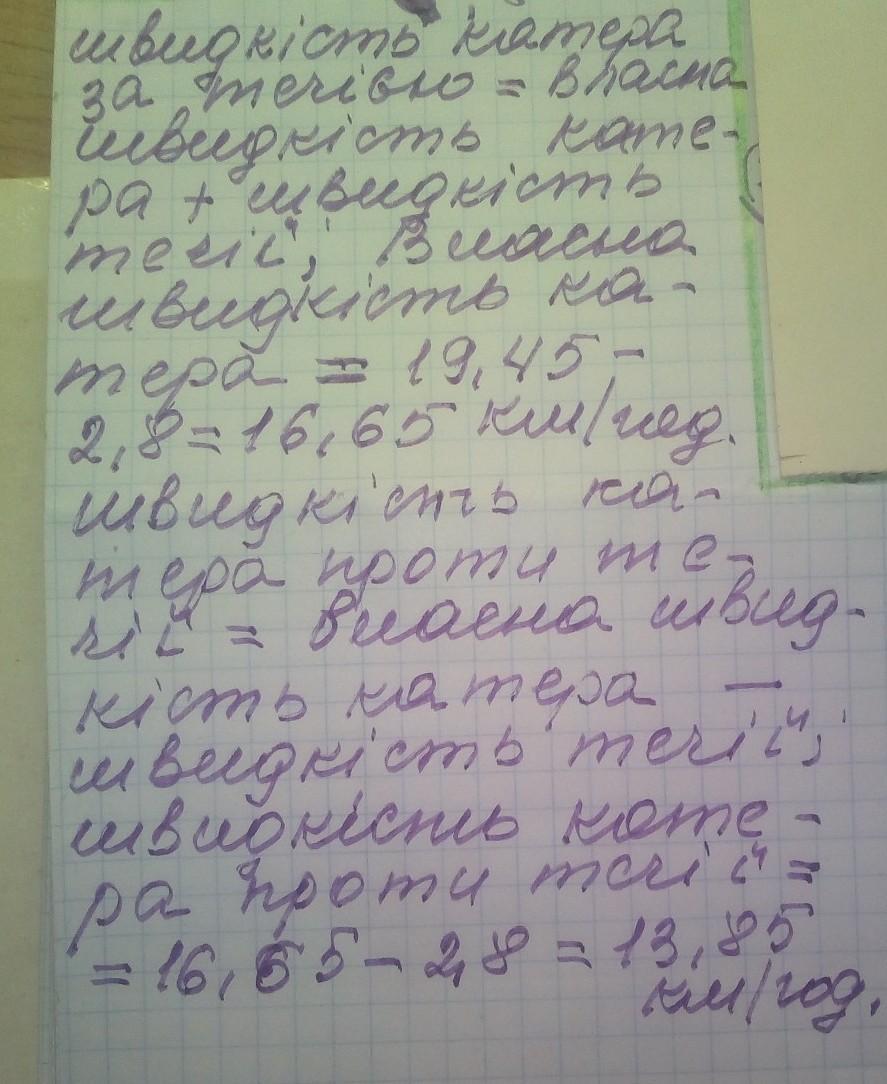 швидкість катера
за течівю = власна
швидкість кате-
ра + швидкість
течії; Власна
швидкість ка-
тера = 19,45 -
2,8 = 16,65 км/год.
швидкість ка-
тера проти те-
чії = власна швид-
кість катера —
швидкість течії;
швидкість кате-
ра проти течії =
= 16,65 - 2,8 = 13,85
км/год.